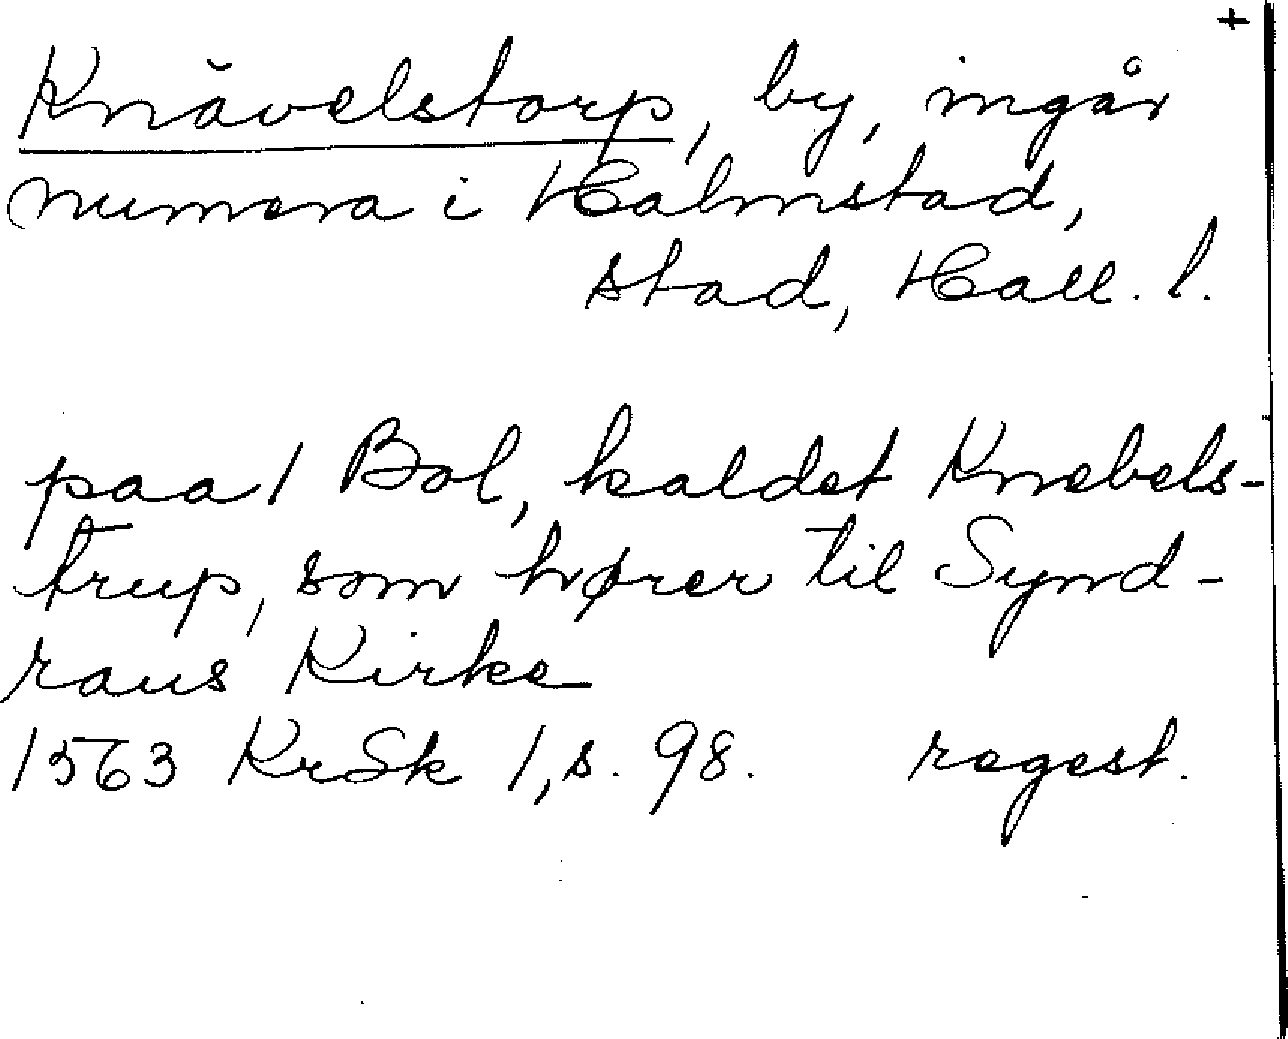 +
Knävelstorp, by, ingår
numera i Halmstad,
stad, Hall. l.
paa 1 Bol, kaldet Knebels-
trup, som hører til Synd-
raus Kirke
1563 KrSk 1, s. 98. regest.